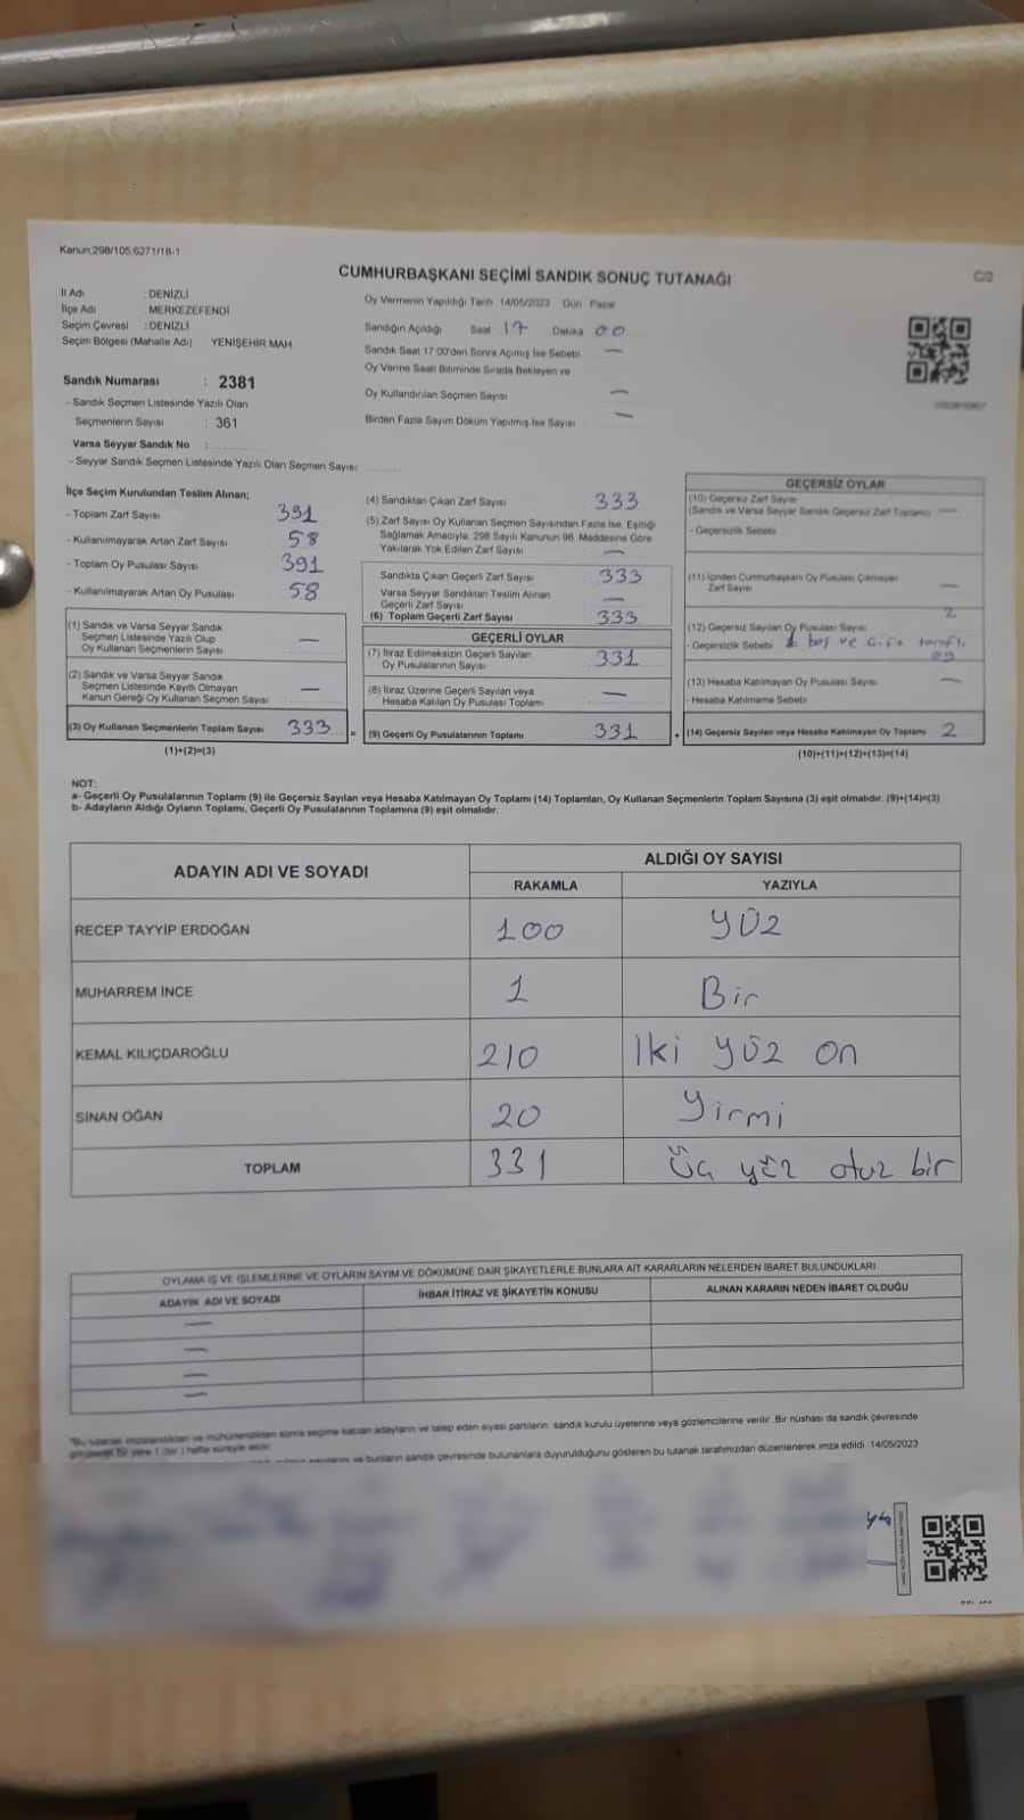 Kanun:298/105;6271/18-1
CUMHURBAŞKANI SEÇİMİ SANDIK SONUÇ TUTANAĞI
C/2
İl Adı : DENİZLİ
İlçe Adı : MERKEZEFENDİ
Seçim Çevresi : DENİZLİ
Seçim Bölgesi (Mahalle Adı) YENİŞEHİR MAH
Sandık Numarası : 2381
- Sandık Seçmen Listesinde Yazılı Olan
Seçmenlerin Sayısı : 361
Varsa Seyyar Sandık No :
- Seyyar Sandık Seçmen Listesinde Yazılı Olan Seçmen Sayısı
Oy Vermenin Yapıldığı Tarih 14/05/2023 Gün Pazar
Sandığın Açıldığı Saat 17 Dakika 00
Sandık Saat 17:00'den Sonra Açılmış İse Sebebi —
Oy Verme Saati Bitiminde Sırada Bekleyen ve
Oy Kullandırılan Seçmen Sayısı —
Birden Fazla Sayım Döküm Yapılmış İse Sayısı —
İlçe Seçim Kurulundan Teslim Alınan;
- Toplam Zarf Sayısı 391
- Kullanılmayarak Artan Zarf Sayısı 58
- Toplam Oy Pusulası Sayısı 391
- Kullanılmayarak Artan Oy Pusulası 58
(1) Sandık ve Varsa Seyyar Sandık
Seçmen Listesinde Yazılı Olup
Oy Kullanan Seçmenlerin Sayısı —
(2) Sandık ve Varsa Seyyar Sandık
Seçmen Listesinde Kayıtlı Olmayan
Kanun Gereği Oy Kullanan Seçmen Sayısı —
(3) Oy Kullanan Seçmenlerin Toplam Sayısı 333
(1)+(2)=(3)
(4) Sandıktan Çıkan Zarf Sayısı 333
(5) Zarf Sayısı Oy Kullanan Seçmen Sayısından Fazla İse, Eşitliği
Sağlamak Amacıyla, 298 Sayılı Kanunun 98. Maddesine Göre
Yakılarak Yok Edilen Zarf Sayısı —
Sandıkta Çıkan Geçerli Zarf Sayısı 333
Varsa Seyyar Sandıktan Teslim Alınan
Geçerli Zarf Sayısı —
(6) Toplam Geçerli Zarf Sayısı 333
GEÇERLİ OYLAR
(7) İtiraz Edilmeksizin Geçerli Sayılan
Oy Pusulalarının Sayısı 331
(8) İtiraz Üzerine Geçerli Sayılan veya
Hesaba Katılan Oy Pusulası Toplamı —
= (9) Geçerli Oy Pusulalarının Toplamı 331 +
GEÇERSİZ OYLAR
(10) Geçersiz Zarf Sayısı
(Sandık ve Varsa Seyyar Sandık Geçersiz Zarf Toplamı) —
- Geçersizlik Sebebi
(11) İçinden Cumhurbaşkanı Oy Pusulası Çıkmayan
Zarf Sayısı —
(12) Geçersiz Sayılan Oy Pusulası Sayısı 2
- Geçersizlik Sebebi boş ve
(13) Hesaba Katılmayan Oy Pusulası Sayısı —
- Hesaba Katılmama Sebebi
(14) Geçersiz Sayılan veya Hesaba Katılmayan Oy Toplamı 2
(10)+(11)+(12)+(13)=(14)
NOT:
a- Geçerli Oy Pusulalarının Toplamı (9) ile Geçersiz Sayılan veya Hesaba Katılmayan Oy Toplamı (14) Toplamları, Oy Kullanan Seçmenlerin Toplam Sayısına (3) eşit olmalıdır. (9)+(14)=(3)
b- Adayların Aldığı Oyların Toplamı, Geçerli Oy Pusulalarının Toplamına (9) eşit olmalıdır.
ADAYIN ADI VE SOYADI ALDIĞI OY SAYISI
RAKAMLA YAZIYLA
RECEP TAYYİP ERDOĞAN 100 YÜZ
MUHARREM İNCE 1 Bir
KEMAL KILIÇDAROĞLU 210 İki yüz on
SİNAN OĞAN 20 Yirmi
TOPLAM 331 Üç yüz otuz bir
OYLAMA İŞ VE İŞLEMLERİNE VE OYLARIN SAYIM VE DÖKÜMÜNE DAİR ŞİKAYETLERLE BUNLARA AİT KARARLARIN NELERDEN İBARET BULUNDUKLARI
ADAYIN ADI VE SOYADI İHBAR İTİRAZ VE ŞİKAYETİN KONUSU ALINAN KARARIN NEDEN İBARET OLDUĞU
—
—
—
—
sonra seçime katılan adayların ve talep eden siyasi partilerin sandık kurulu üyelerine veya gözlemcilerine verilir. Bir nüshası da sandık çevresinde
ve bunların sandık çevresinde bulunanlara duyurulduğunu gösteren bu tutanak tarafımızdan düzenlenerek imza edildi. 14/05/2023